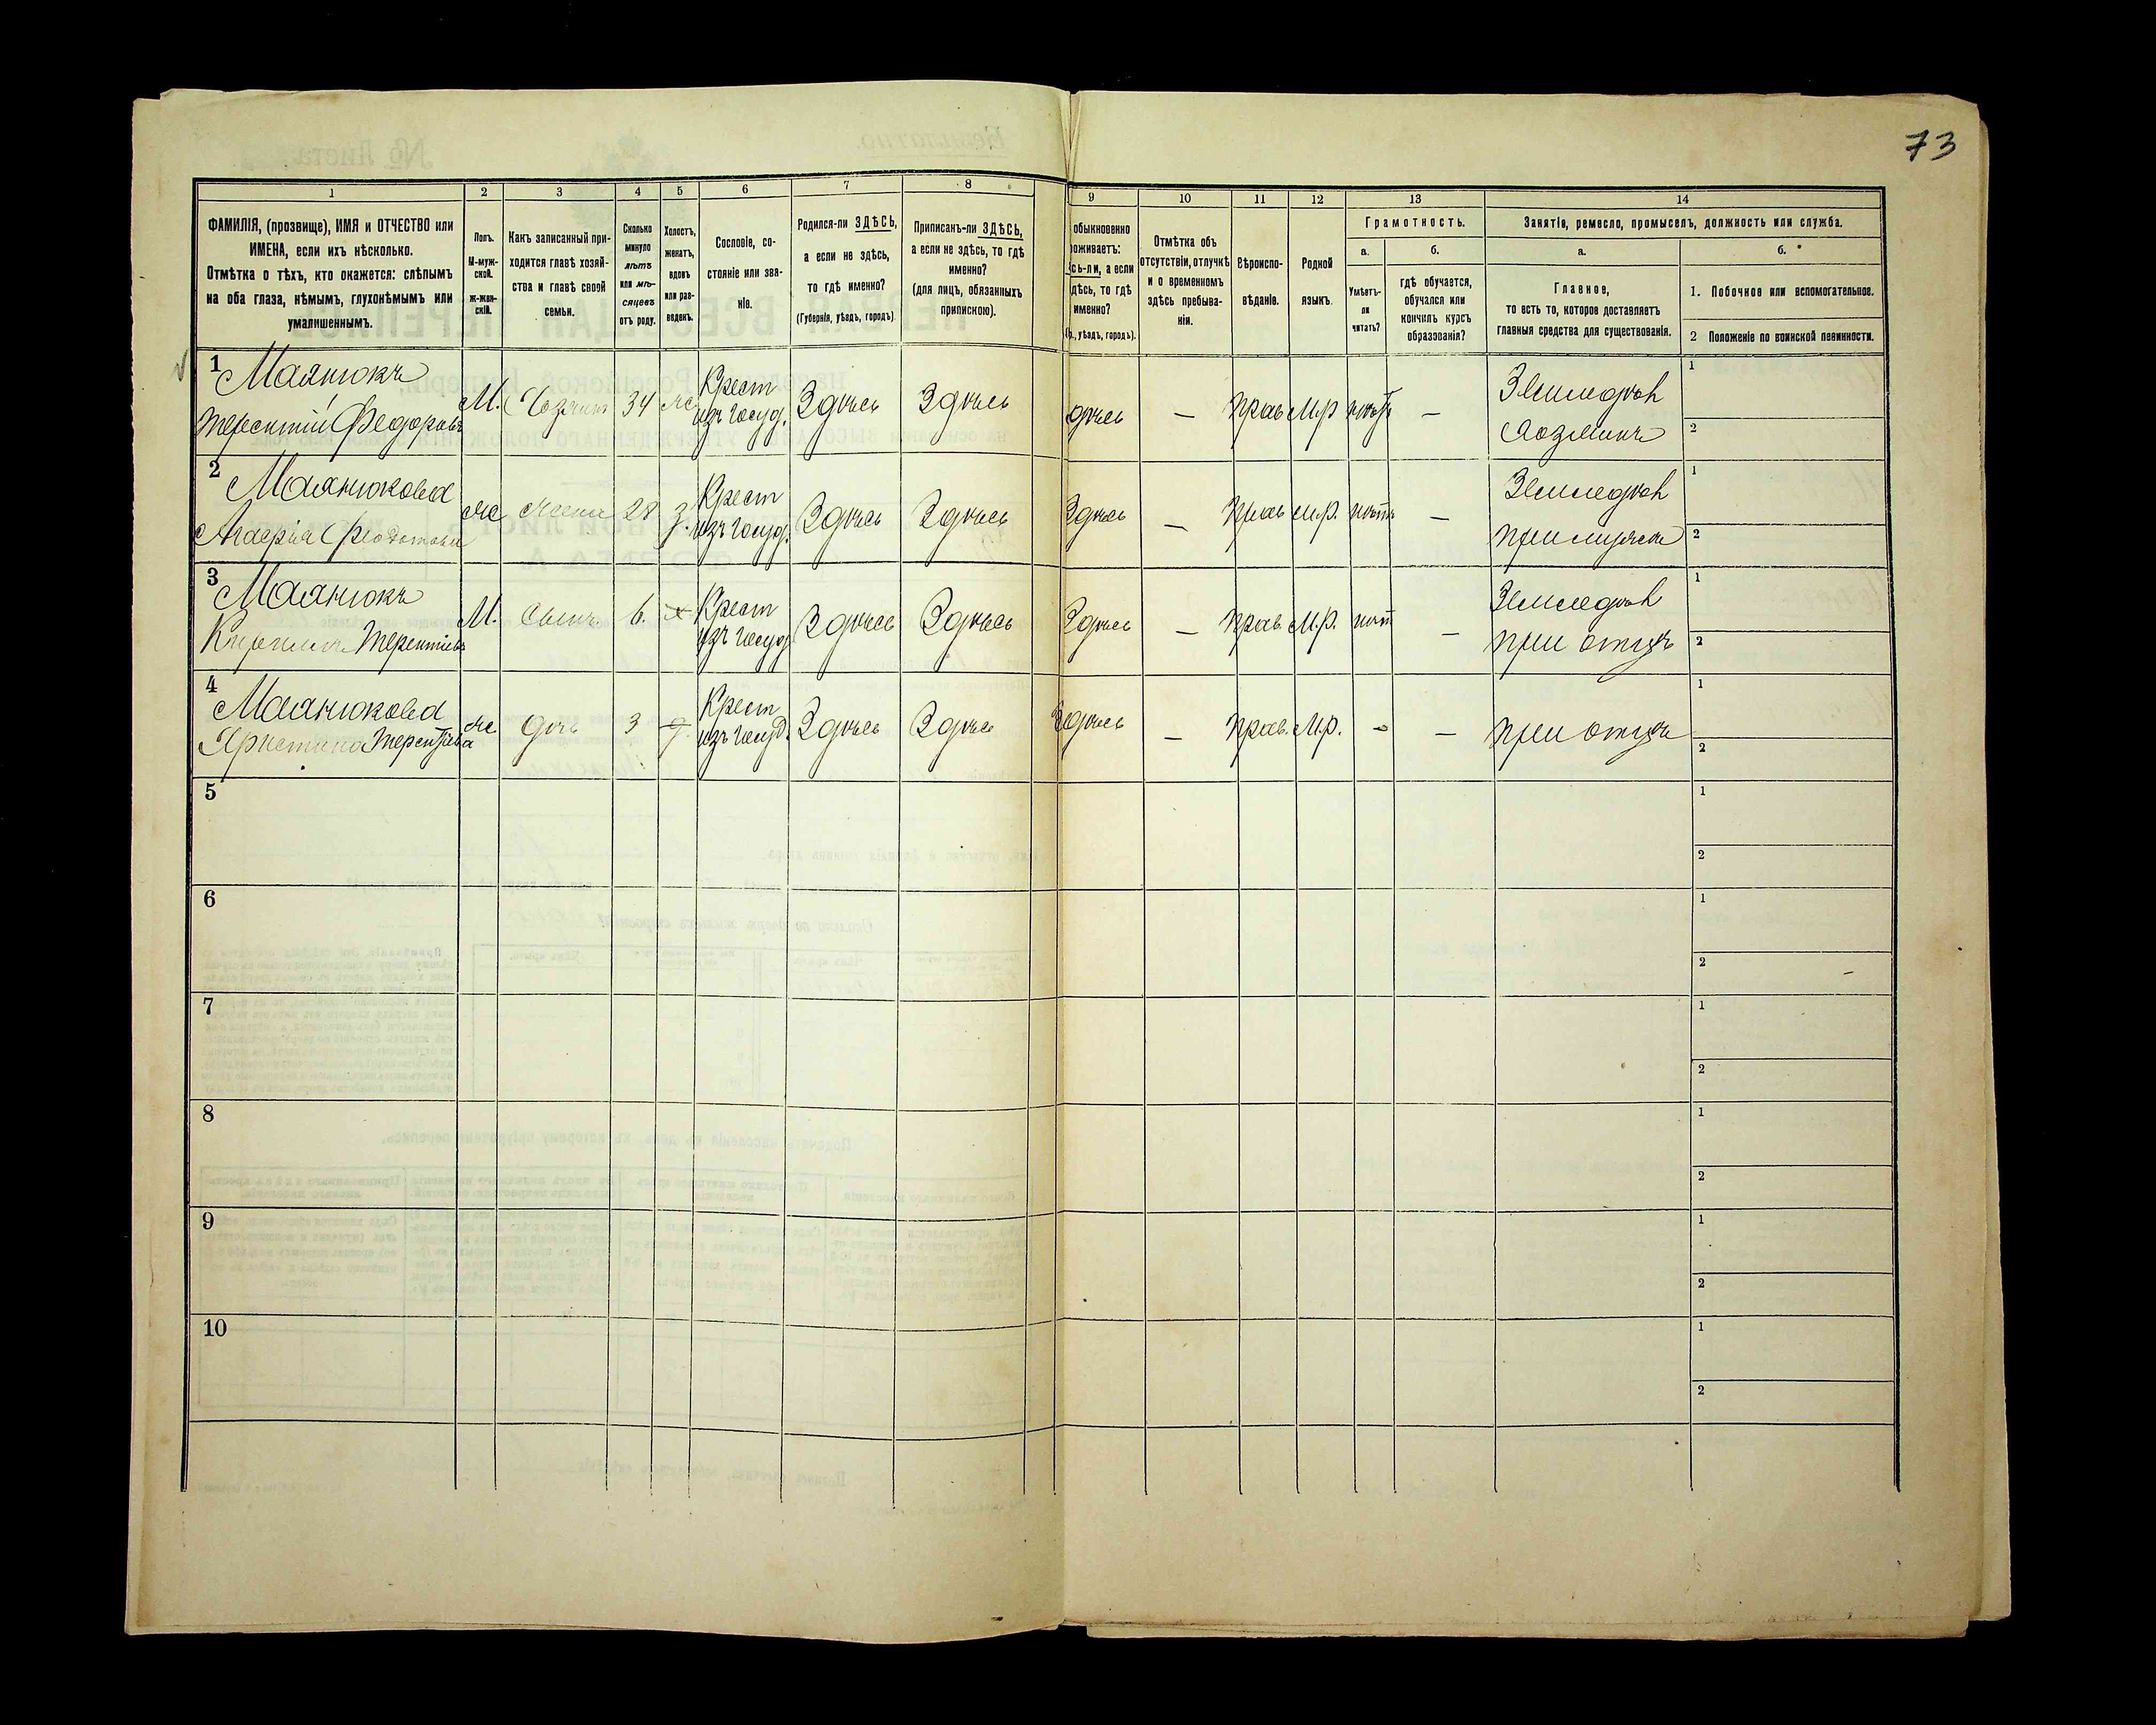 73
1 2 3 4 5 6 7 8 9 10 11 12 13 14
ФАМИЛІЯ, (прозвище), ИМЯ и ОТЧЕСТВО или
ИМЕНА, если ихъ нѣсколько.
Отмѣтка о тѣхъ, кто окажется: слѣпымъ
на оба глаза, нѣмымъ, глухонѣмымъ или
умалишеннымъ.
Полъ.
М-муж-
ской.
ж-жен-
скій.
Какъ записанный при-
ходится главѣ хозяй-
ства и главѣ своей
семьи.
Сколько
минуло
лѣтъ
или мѣ-
сяцевъ
отъ роду.
Холостъ,
женатъ,
вдовъ
или раз-
веденъ.
Сословіе, со-
стояніе или зва-
ніе.
Родился-ли ЗДѢСЬ,
а если не здѣсь,
то гдѣ именно?
(Губернія, уѣздъ, городъ)
Приписанъ-ли ЗДѢСЬ,
а если не здѣсь, то гдѣ
именно?
(для лицъ, обязанныхъ
припискою).
обыкновенно
оживаетъ:
сь-ли, а если
дѣсь, то гдѣ
именно?
, уѣздъ, городъ).
Отмѣтка объ
отсутствіи, отлучкѣ
и о временномъ
здѣсь пребыва-
ніи.
Вѣроиспо-
вѣданіе.
Родной
языкъ.
Грамотность.
а.
Умѣетъ-
ли
читать?
б.
гдѣ обучается,
обучался или
кончилъ курсъ
образованія?
Занятіе, ремесло, промыселъ, должность или служба.
а.
Главное,
то есть то, которое доставляетъ
главныя средства для существованія.
б.
1. Побочное или вспомогательное.
2 Положеніе по воинской повинности.
1 Маянюкъ
Терентій Федоровъ
М. Хозяинъ 34 ж.
Крест
изъ госуд.
Здѣсь Здѣсь
дѣсь — Прав М.р нѣтъ —
Земледѣл
Хозяинъ
1
2
2 Маянюкова
Федотова
ж жена 28 з.
Крест
изъ госуд.
Здѣсь Здѣсь
Здѣсь — Прав м.р. нѣтъ —
Земледѣл
при мужѣ
1
2
3 Маянюкъ
Кирилъ Терентіевъ
М. Сынъ. 6. х
Крест
изъ госуд
Здѣсь Здѣсь
Здѣсь — Прав. М.р. нѣт —
Земледѣл
при отцѣ
1
2
4 Маянюкова
Христина Терентіева
ж дочь 3
Крест
изъ госуд.
Здѣсь Здѣсь
Здѣсь — Прав. М.р. - —
при отцѣ
1
2
5
1
2
6
1
2
7
1
2
8
1
2
9
1
2
10
1
2